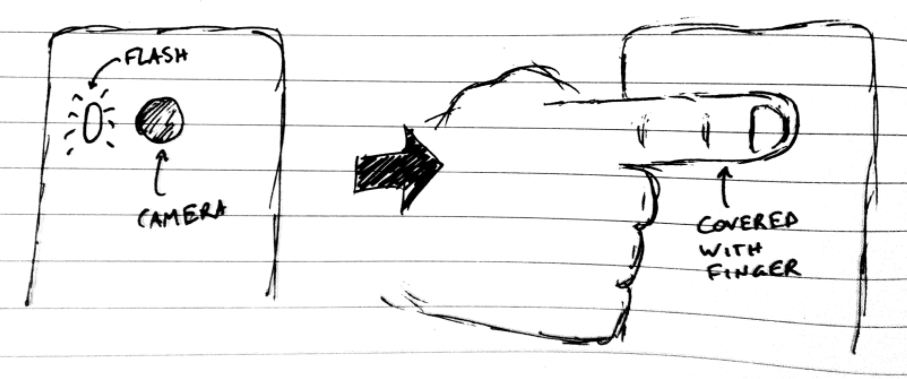 FLASH
CAMERA
COVERED
WITH
FINGER